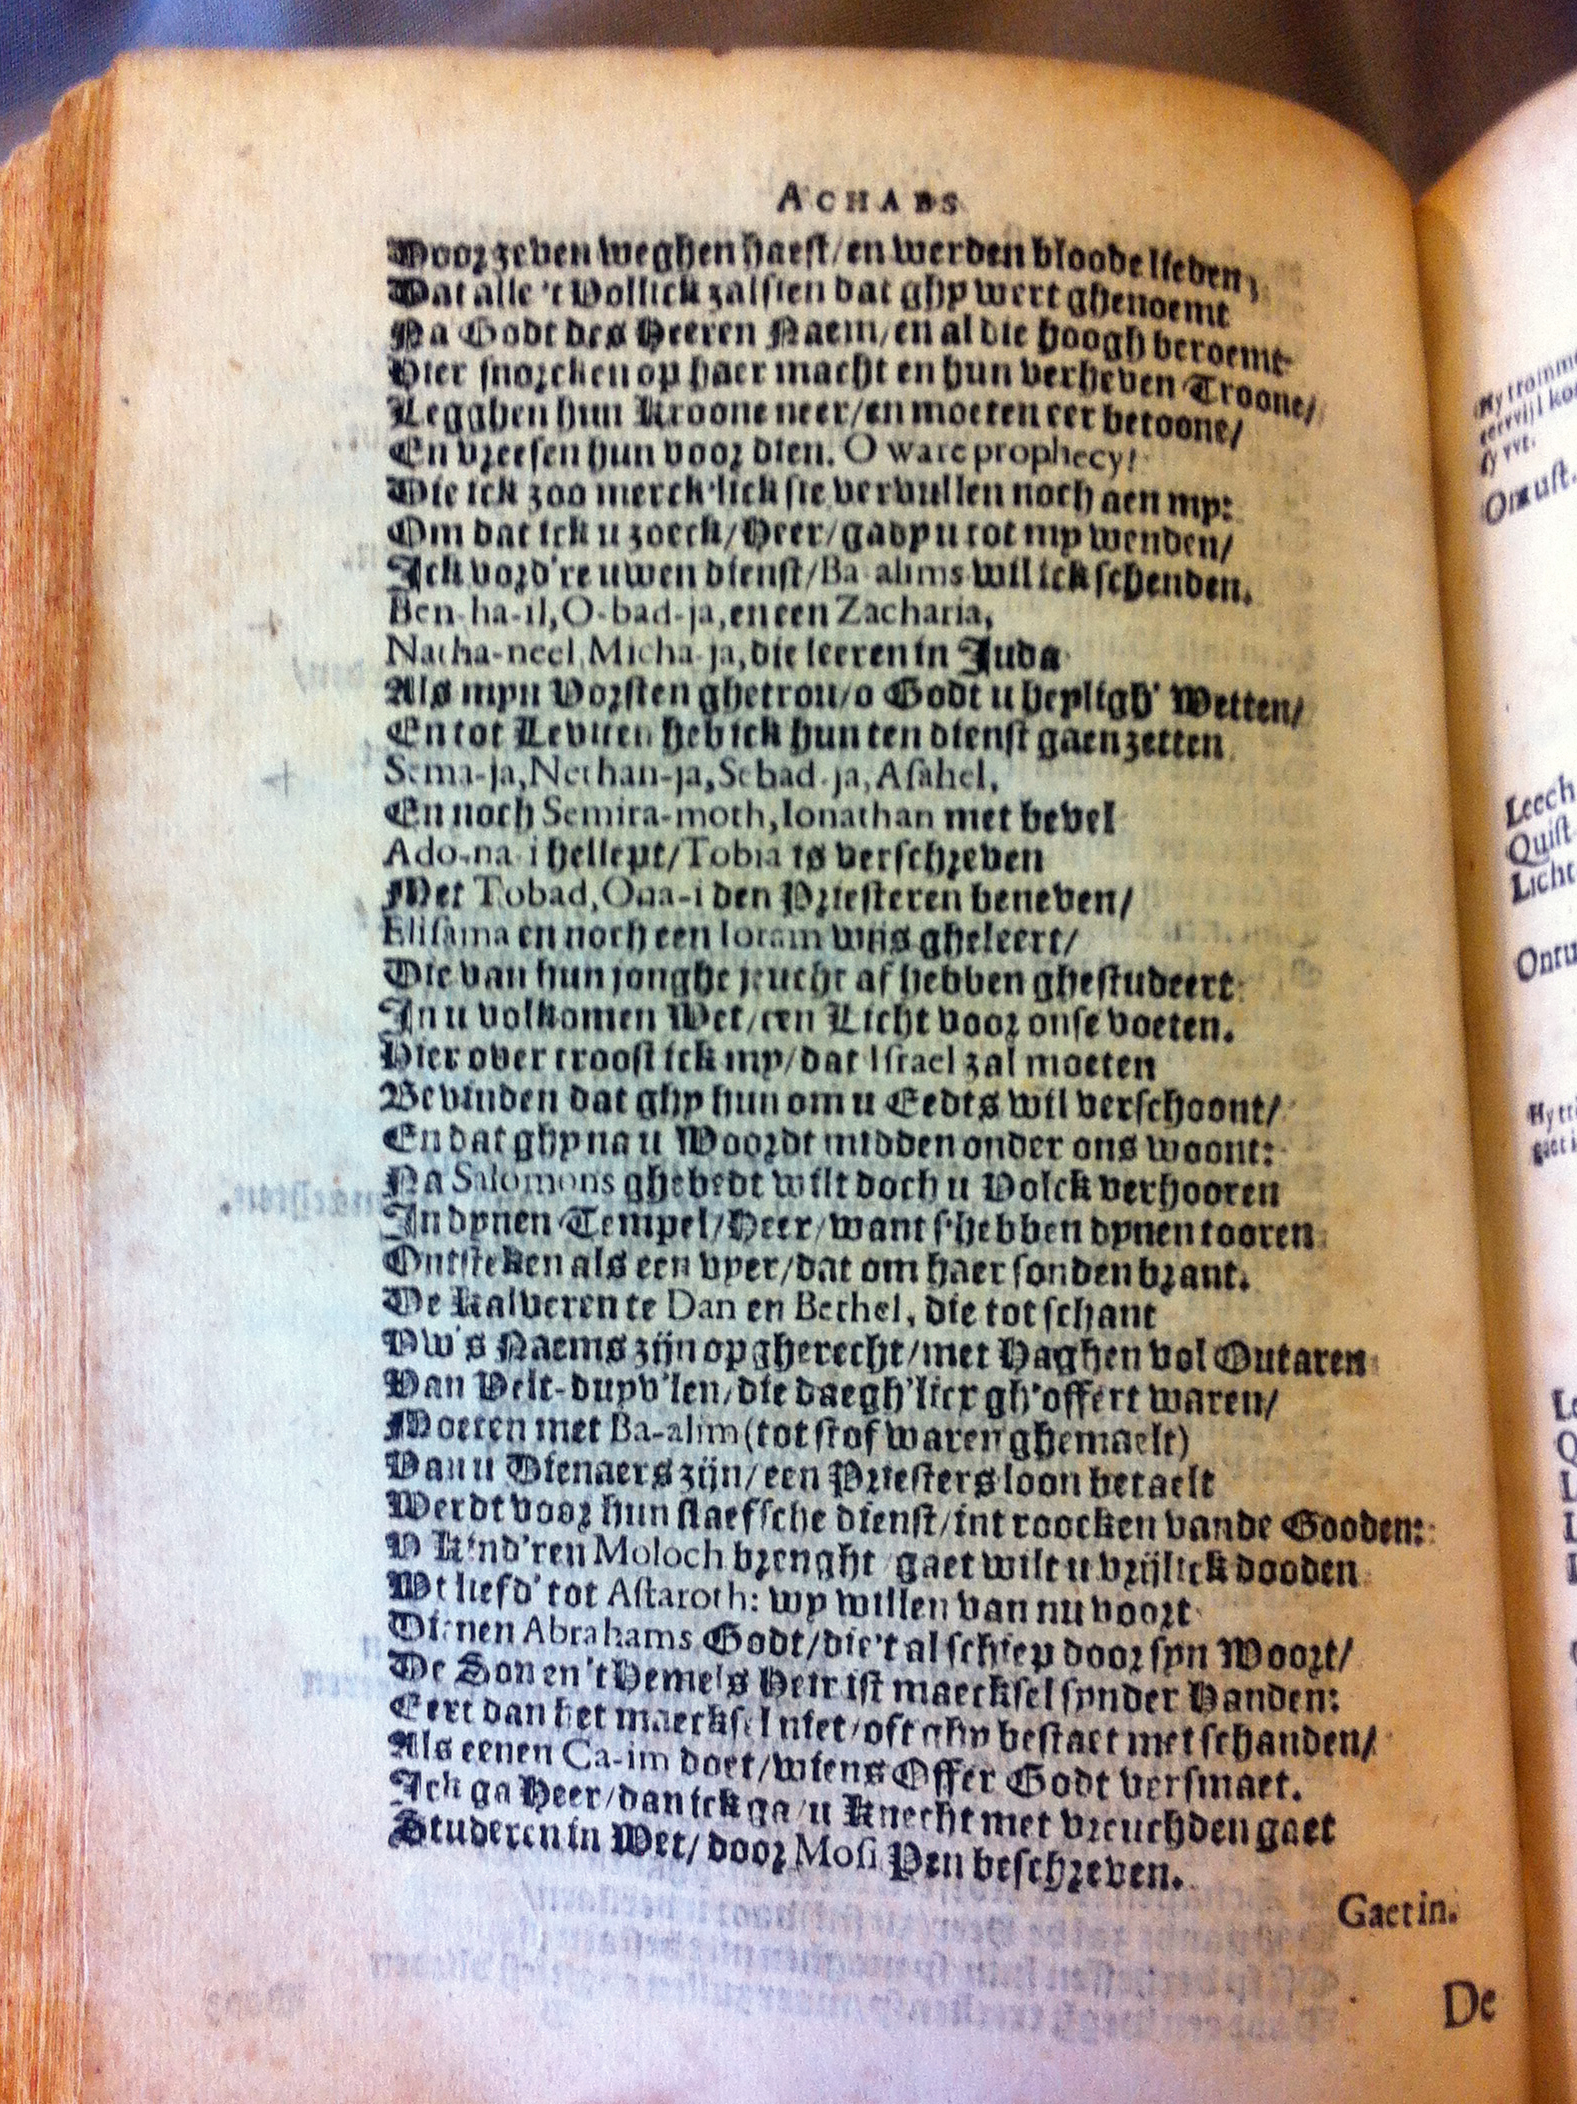 ACHABS
Door zeven weghen haest/en werden bloode lieden,
Dat alle 't Vollick zal sien dat ghy wert ghenoemt
Na Godt des Heeren Naem/en al die hoogh beroemt
Hier snorcken op haer macht en hun verheven Troone/
Legghen hun Kroone neer/en moeten eer betoone/
En vreesen hun voor dien. O ware prophecy!
Die ick zoo merck'lick sie vervullen noch aen my:
Om dat ick u zoeck/Heer/gady u tot my wenden/
Ick vord're uwen dienst/Ba-alims wil ick schenden.
Ben-ha-il, O-bad-ja, en een Zacharia,
Natha-neel, Micha-ja, die leeren in Juda
Als mijn Vorsten ghetrou/o Godt u heyligh' Wetten/
En tot Leviten heb ick hun ten dienst gaen zetten
Sema-ja, Nethan-ja, Sebad-ja, Asahel,
En noch Semira-moth, Ionathan met bevel
Ado-na-i hellept/Tobia is verschreven
Met Tobad, Ona-i den Priesteren beneven/
Elisama en noch een Ioram wijs gheleert/
Die van hun jonghe jeucht af hebben ghestudeert
In u volkomen Wet/een Licht voor onse voeten.
Hier over troost ick my/dat Israel zal moeten
Bevinden dat ghy hun om u Eedts wil verschoont/
En dat ghy na u Woordt midden onder ons woont:
Na Salomons ghebedt wilt doch u Volck verhooren
In dynen Tempel/Heer/want s'hebben dynen tooren
Ontsteken als een vyer/dat om haer sonden brant.
De Kalveren te Dan en Bethel, die tot schant
Vw's Naems zijn op gherecht/met Haghen vol Outaren
Van Velt-duyv'len/die daegh'licx gh'offert waren/
Moeten met Ba-alim (tot stof waren ghemaelt)
Van u Dienaers zijn/een Priesters loon betaelt
Werdt voor hun slaefsche dienst/int roocken vande Gooden:
V Kind'ren Moloch brenght gaet wilt u vrijlick dooden
Wt liefd' tot Astaroth: wy willen van nu voort
Dienen Abrahams Godt/die 't al schiep door syn Woort/
De Son en 't Hemels Heir ist maecksel synder Handen:
Eert dan het maecksel niet/oft ghy bestaet met schanden/
Als eenen Ca-im doet/wiens Offer Godt versmaet.
Ick ga Heer/dan ick ga/u Knecht met vreuchden gaet
Studeren in Wet/door Mosi Pen beschreven.
Gaet in.
De
Hy
fy vvt.
Om ust.
Leech
Quist
Licht